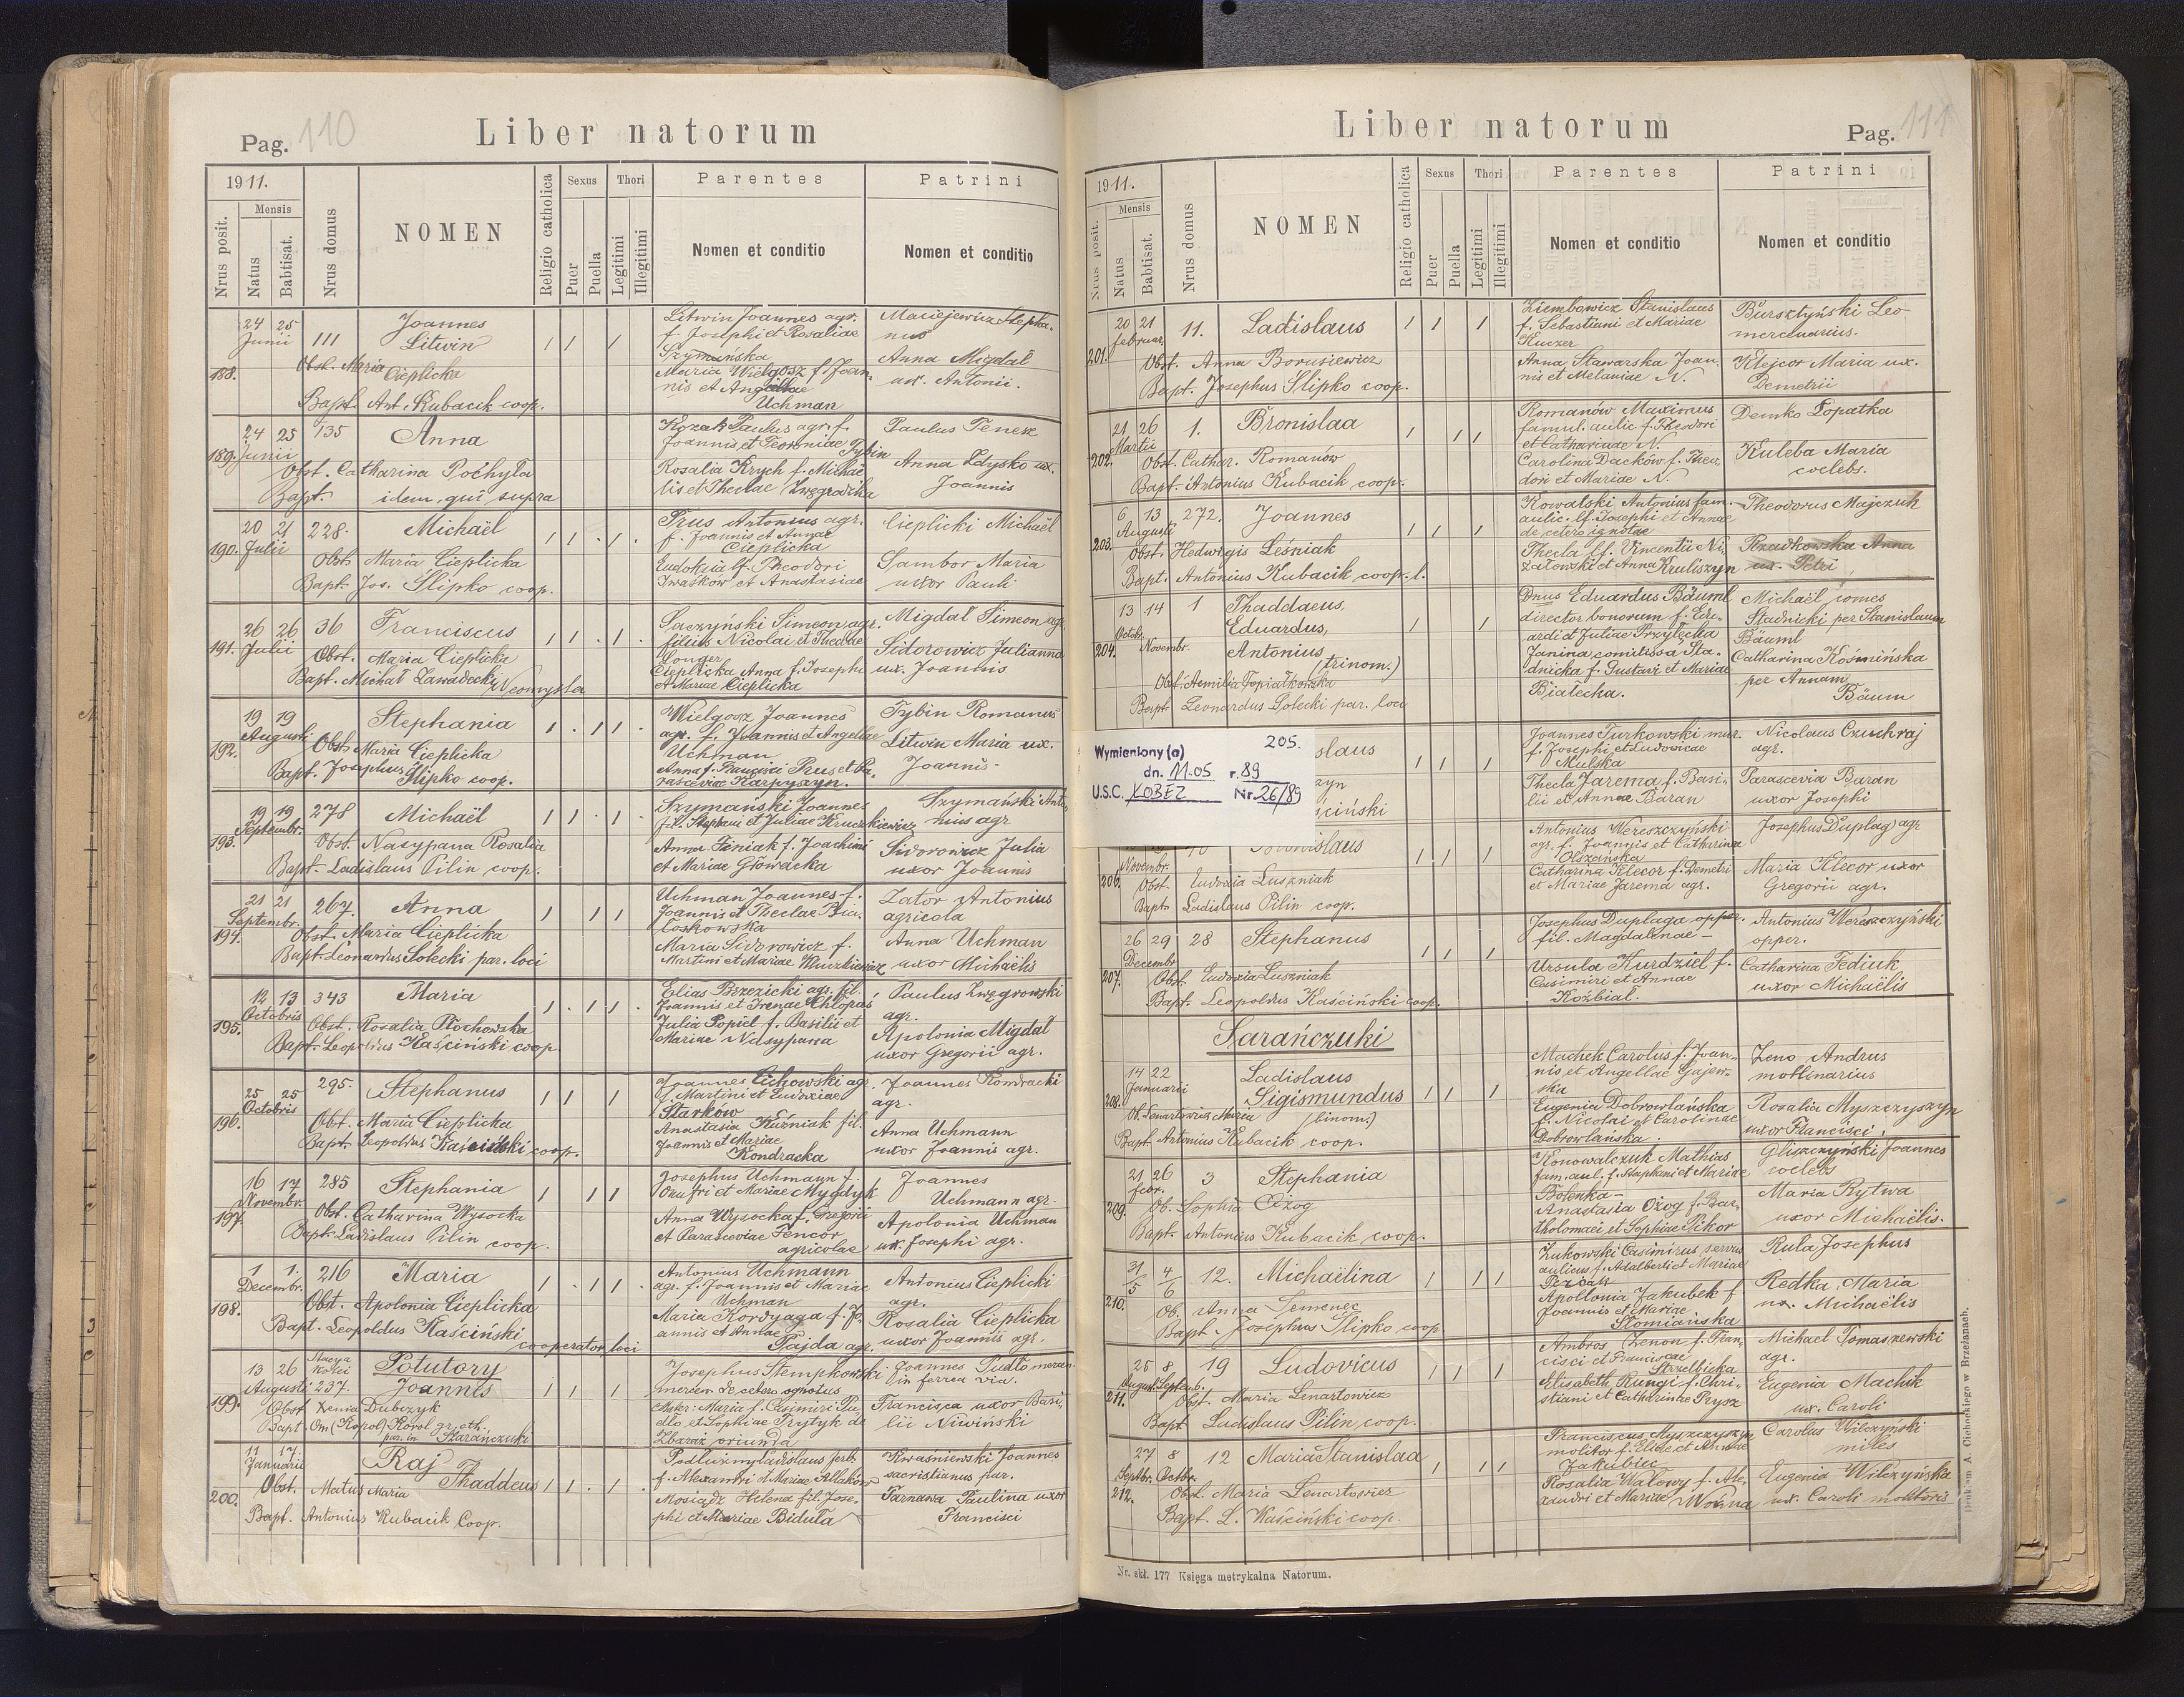 Pag. 110
Liber natorum
1911.
Mensis
Nrus posit.
Natus
Babtisat.
Nrus domus
NOMEN
Religio catholica
Sexus
Puer
Puella
Thori
Legitimi
Illegitimi
Parentes
Nomen et conditio
Patrini
Nomen et conditio
188.
24 25
Junii
111
Joannes
Litwin
Obst. Maria
Cieplicka
Bapt. Ant. Kubacik coop.
Litwin Joannes agr.
f. Josephi et Rosaliae
Szymańska
Maria Wielgosz f. Joan-
nis et Angellae
Uchman
Maciejewicz Stepha-
nus
Anna Migdal
ux. Antonii.
189.
24 25 135
Junii
Anna
Obst. Catharina Pochyla
Bapt. idem, qui supra
Kozak Paulus agr. f.
Joannis et Teoroniae Tybin
Rosalia Krych f. Michae
lis et Theclae
Paulus Tenesz
Anna Zdysko ux.
Joannis
190.
20 21 228.
Julii
Michaël
Obst. Maria Cieplicka
Bapt. Jos. Slipko coop.
Prus Antonius agr.
f. Joannis et Annae
Cieplicka
Eudoksia f. Theodori
Iwaśków et Anastasiae
Cieplicki Michaël
Sambor Maria
uxor Pauli
191.
26 26 36
Julii
Franciscus
Obst. Maria Cieplicka
Bapt. Michał Zawadecki Neomysta
Saczyński Simeon agr.
filius Nicolai et Theclae
Longer
Cieplicka Anna f. Josephi
et Mariae Cieplicka
Migdał Simeon agr.
Sidorowicz Julianna
ux. Joannis
192.
19 19
Augusti
Stephania
Obst. Maria Cieplicka
Bapt. Josephus
Slipko coop.
Wielgosz Joannes
agr. f. Joannis et Angellae
Uchman
Anna f. Francisci Prus et Pa-
rasceviae Karpyszyn.
Tybin Romanus
Litwin Maria ux.
Joannis-
193.
19 19 278
Septembr.
Michaël
Obst. Nasypana Rosalia
Bapt. Ladislaus Pilin coop.
Szymański Joannes
fil. Stephani et Juliae Kruczkiewicz
Anna Feniak f. Joachimi
et Mariae Głowacka
Szymański Anto-
nius agr
Sidorowicz Julia
uxor Joannis
194.
21 21 267.
Septembr.
Anna
Obst. Maria Cieplicka
Bapt. Leonardus Solecki par. loci
Uchman Joannes f.
Joannis et Theclae Bia-
łoskowska
Maria Sidorowicz f.
Martini et Mariae Muczkiewicz
Zator Antonius
agricola
Anna Uchman
uxor Michaëlis
195.
12 13 343
Octobris
Maria
Obst. Rosalia Płochowska
Bapt. Leopoldus Kaściński coop.
Elias Brzezicki agr. fil.
Joannis et Irenae Chłopaś
Julia Popiel f. Basilii et
Mariae Nasypana
Paulus Zwęgrowski
agr.
Apolonia Migdał
uxor Gregorii agr.
196.
25 25 295.
Octobris
Stephanus
Obst. Maria Cieplicka
Bapt. Leopoldus Kaściński coop.
Joannes Cichowski agr.
f. Martini et Eudoxiae
Starków
Anastasia Kuśniak fil.
Joannis et Mariae
Kondracka
Joannes Kondracki
agr.
Anna Uchmann
uxor Joannis agr.
197.
16 17 285
Novembr.
Stephania
Obst. Catharina Wysocka
Bapt. Ladislaus Pilin coop.
Josephus Uchmann f.
Onufri et Mariae Mygdyk
Anna Wysocka f. Gregorii
et Parasceviae Fencor
agricolae
Joannes
Uchmann agr.
Apolonia Uchman
ux. Josephi agr.
198.
1 1. 216
Decembr.
Maria
Obst. Apolonia Cieplicka
Bapt. Leopoldus Kaściński
cooperator loci
Antonius Uchmann
agr. f. Joannis et Mariae
Uchman
Maria Kordyaga f. Jo-
annis et Annae
Pajda agr.
Antonius Cieplicki
agr.
Rosalia Cieplicka
uxor Joannis agr.
199.
13 26
Augusti
Stacya
kolei
237.
Potutory
Joannes
Obst. Xenia Dubczyk
Bapt. Om. (Korol) Korol gr. cth.
par. in Szaranczuki
Josephus Stempkowski
mercen. de cetero ignotus
Mater: Maria f. Casimiri Pu-
dło et Sophiae Prytyk de
Zbaraż oriunda
Joannes Pudło mercen.
in ferrea via.
Francisca uxor Basi-
lii Niwiński
200.
11 17.
Januarii
Raj
Thaddeus
Obst. Matus Maria
Bapt. Antonius Kubacik Coop.
f. Alexandri et Mariae
Mosiądz Helena fil. Jose-
phi et Mariae Bidula
Kwaśniewski Joannes
sacristianus par.
Tarnawa Paulina uxor
Francisci
Liber natorum
Pag. 111
1911.
Mensis
Nrus posit.
Natus
Babtisat.
Nrus domus
NOMEN
Religio catholica
Sexus
Puer
Puella
Thori
Legitimi
Illegitimi
Parentes
Nomen et conditio
Patrini
Nomen et conditio
201.
20 21 11.
Februar.
Ladislaus
Obst. Anna Borusiewicz
Bapt. Josephus Slipko coop.
Ziembowicz Stanislaus
f. Sebastiani et Mariae
Kuczer
Anna Stawarska Joan-
nis et Melaniae N.
Bursztyński Leo
mercenarius.
Klejcor Maria ux.
Demetrii
202.
21 26 1.
Martii
Bronislaa
Obst. Cathar. Romanów
Bapt. Antonius Kubacik coop.
Romanów Maximus
famul. aulic f. Theodori
et Catharinae N.
Carolina Dacków f. Theo-
dori et Mariae N.
Demko Łopatka
Kuleba Maria
coelebs.
203.
6 13 272.
Augusti
Joannes
Obst. Hedwigis Leśniak
Bapt. Antonius Kubacik coop. l.
Kowalski Antonius fam.
aulic. lf. Josephi et Annae
de cetero ignotae
Thecla lf. Vincentii Ni-
załowski et Anna Kruliszyn
Theodorus Majczuk
Przedkowska Anna
ux. Petri
204.
13 14 1
Octobr.
Novembr.
Thaddaeus,
Eduardus,
Antonius
(trinom.)
Obst. Aemilia Popiałkowska
Bapt. Leonardus Solecki par. loci
Dnus Eduardus Bäuml
director bonorum f. Edu-
ardi et Juliae Przyłęcka
Janina comitissa Sta-
dnicka f. Gustavi et Mariae
Białecha.
Michaël comes
Stadnicki per Stanislaum
Bäuml
Catharina Koźmińska
per Annam
Bäum
Wymieniony (a) 205.
dn. 11-05 r. 89
U.S.C. ŁOBEZ Nr. 26/89
slaus
zyn
ściński
Joannes Turkowski mur.
f. Josephi et Ludovicae
Mulska
Thecla Jarema f. Basi-
lii et Annae Baran
Nicolaus Czuchraj
agr.
Parascevia Baran
uxor Josephi
206.
Novembr.
Obst. Eudoxia Łuszniak
Bapt. Ladislaus Pilin coop.
Antonius Wereszczyński
agr. f. Joannis et Catharinae
Olszańska
Catharina Klecor f. Demetri
et Mariae Jarema agr.
Josephus Duplag agr
Maria Klecor uxor
Gregorii agr.
207.
26 29 28
Decembr
Stephanus
Obst. Eudoxia Łuszniak
Bapt. Leopoldus Kaściński coop.
Josephus Duplaga opper.
fil. Magdalenae -
Ursula Kurdziel f.
Casimiri et Annae
Koźbial.
Antonius Wereszczyński
opper.
Catharina Fediuk
uxor Michaëlis
Sarańczuki
208.
14 22
Januarii
Ladislaus
Sigismundus
(binom.)
Ob. Lenartowicz Maria
Bapt. Antonius Kubacik coop.
Machek Carolus f. Joan-
nis et Angellae Gajew-
ska
Eugenia Dobrowlańska
f. Nicolai et Carolinae
Dobrowlańska.
Zeno Andrus
mollinarius
Rosalia Myszczyszyn
uxor Francisci.
209.
21 26 3
Febr.
Stephania
Ob. Sophia Ożog
Bapt. Antonius Kubacik coop.
Konowalczuk Mathias
fam. aul. f. Stephani et Mariae
Bolenka -
Anastasia Ożog f. Bar-
tholomaei et Sophiae Pikor
Gliszczyński Joannes
coelebs
Maria Rytwa
uxor Michaëlis.
210.
31/5 4/6 12.
Michaëlina
Ob. Anna Semenec
Bapt. Josephus Slipko coop
Żukowski Casimirus servus
aulicus f. Adalberti et Mariae
Perdak
Apollonia Jakubek f.
Joannis et Mariae
Słomiańska
Rula Josephus
Redka Maria
ux. Michaëlis
211.
25 8 19
August. Septemb.
Ludovicus
Obst. Maria Lenartowicz
Bapt. Ladislaus Pilin coop.
Ambros Zenon f. Fran-
cisci et Franciscae
Strzelbicka
Elisabeth Rungi f. Chri-
stiani et Catharinae Prysz
Michael Tomaszewski
agr.
Eugenia Machik
ux. Caroli
212.
27 8 12
Septbr. Octbr.
Maria Stanislaa
Obst. Maria Lenartowicz
Bapt. L. Kaściński coop.
Franciscus Myszczyszyn
molitor f. Eliae et Annae
Jakubiec
Rosalia Wałowy f. Ale-
xandri et Mariae Woźna
Carolus Wilczyński
miles
Eugenia Wilczyńska
ux. Caroli molitoris
Nr. skł. 177 Księga metrykalna Natorum.
Drukiem A. Cichockiego w Brzeżanach.